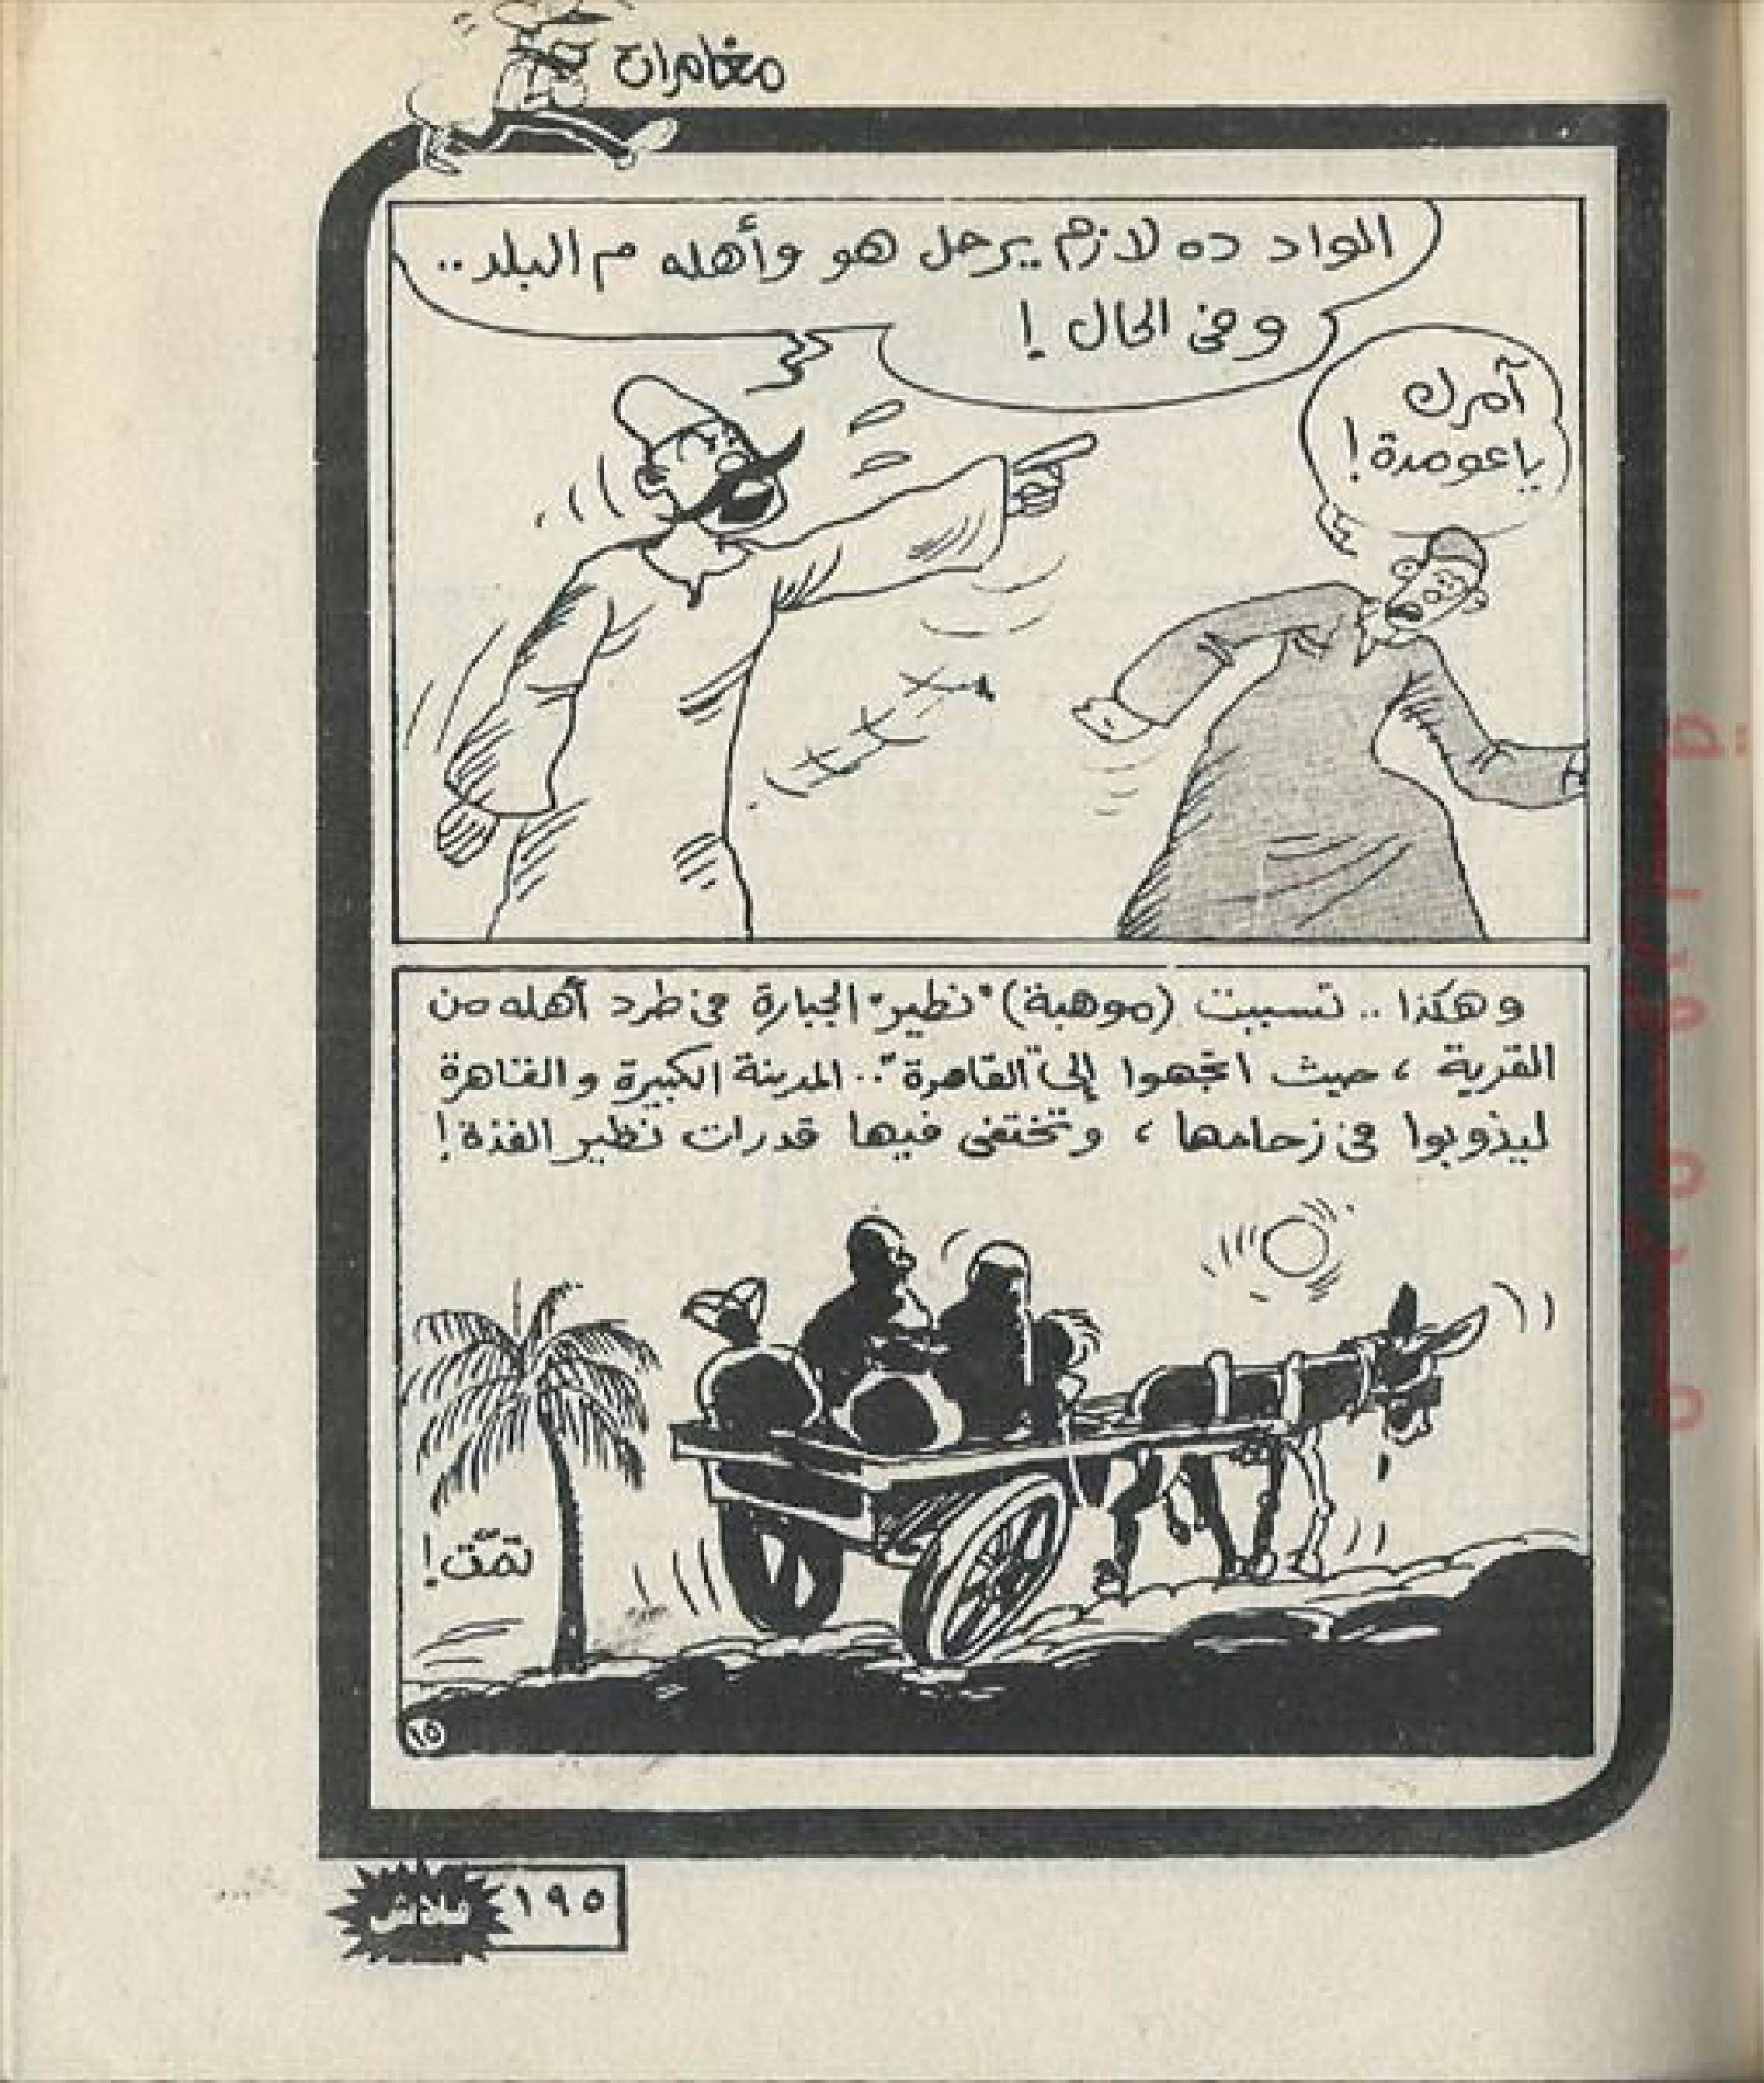 مغامرات
الواد ده لازم يرحل هو وأهله م البلد..
وفى الحال!
آمرك
ياعومدة!
وهكذا.. تسببت (موهبة) "نظير" الجبارة فى طرد أهله من
القرية، حيث اتجهوا إلى "القاهرة".. المدينة الكبيرة والقاهرة
ليذوبوا فى زحامها، وتختفى فيها قدرات نظير الفذة!
تمّت!
١٥
١٩٥
فلاش